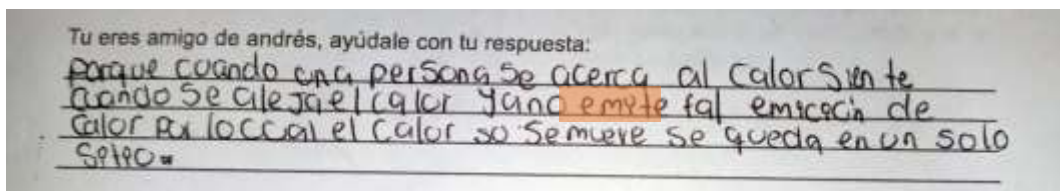 Tu eres amigo de andrés, ayúdale con tu respuesta:
Porque cuando una persona se acerca al calor siente
cuando se aleja el calor ya no emite tal emicocin de
calor por loccual el calor so se mueve se queda en un solo